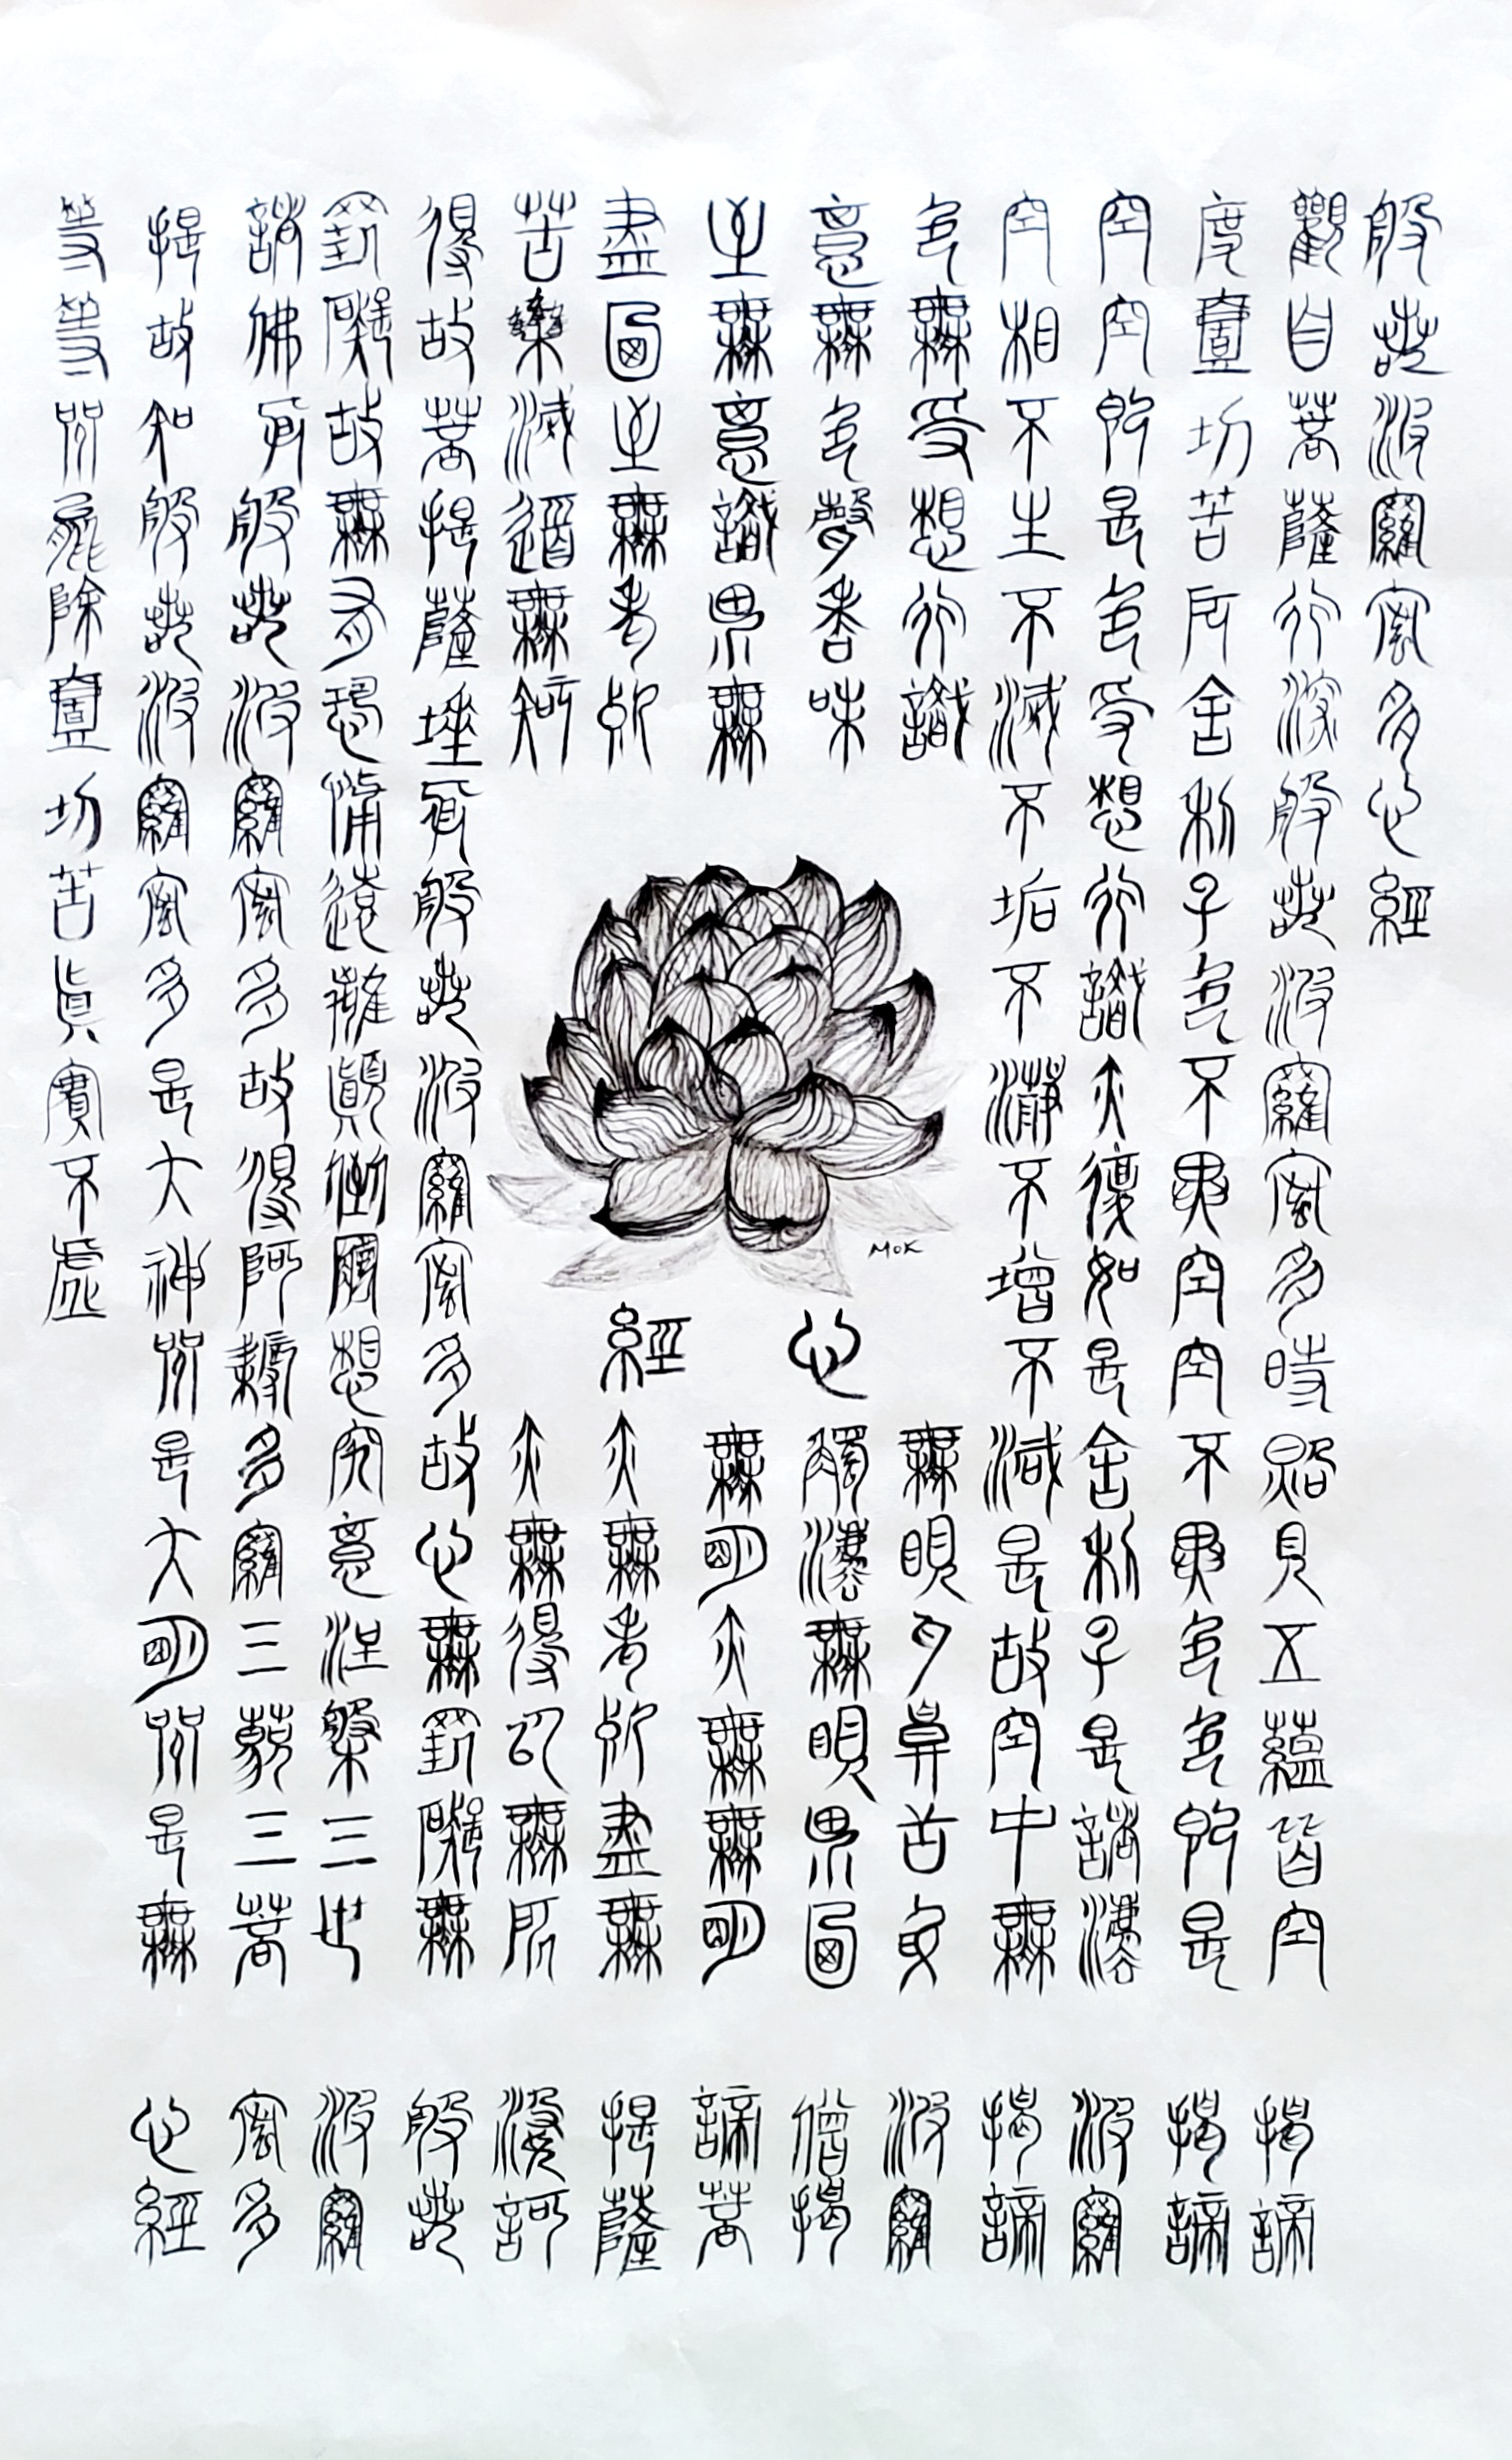 般若波羅蜜多心經
觀自菩薩行深般若波羅蜜多時照見五蘊皆空
度壹切苦厄舍利子色不異空空不異色色即是
空空即是色受想行識亦復如是舍利子是諸法
空相不生不滅不垢不淨不增不減是故空中無
色無受想行識無眼耳鼻舌身
意無色聲香味觸法無眼界乃
至無意識界無無明亦無無明
盡乃至無老死亦無老死盡無
苦集滅道無智亦無得以無所
得故菩提薩埵依般若波羅蜜多故心無罣礙無
罣礙故無有恐怖遠離顛倒夢想究竟涅槃三世
諸佛依般若波羅蜜多故得阿耨多羅三藐三菩
提故知般若波羅蜜多是大神咒是大明咒是無
等等咒能除壹切苦真實不虛
MOK
心經
揭諦
揭諦
波羅
揭諦
波羅
僧揭
諦菩
提薩
婆訶
般若
波羅
蜜多
心經